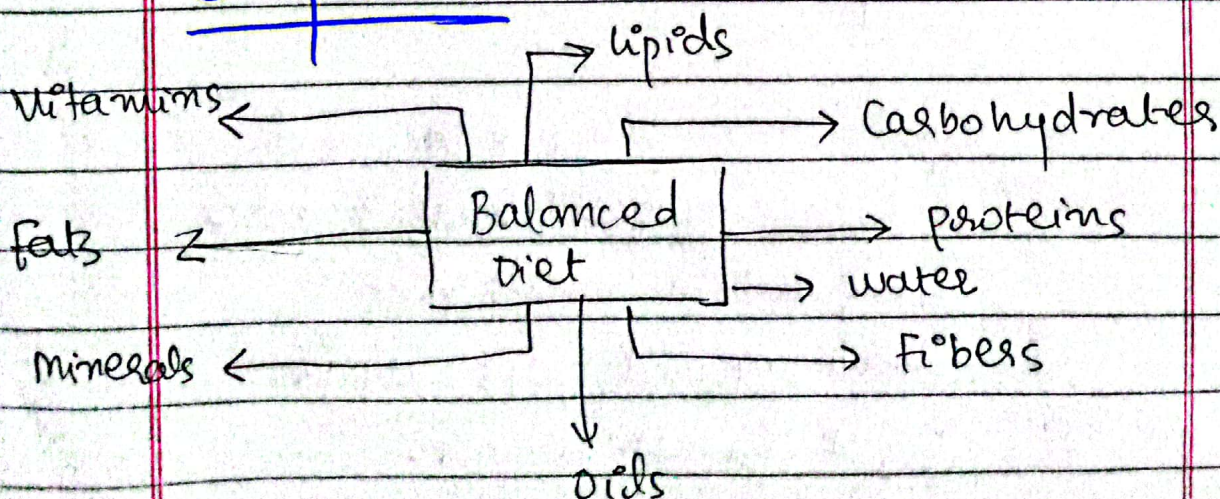 lipids
Vitamins
Carbohydrates
Balanced
Diet
fats
proteins
water
minerals
Fibers
oils